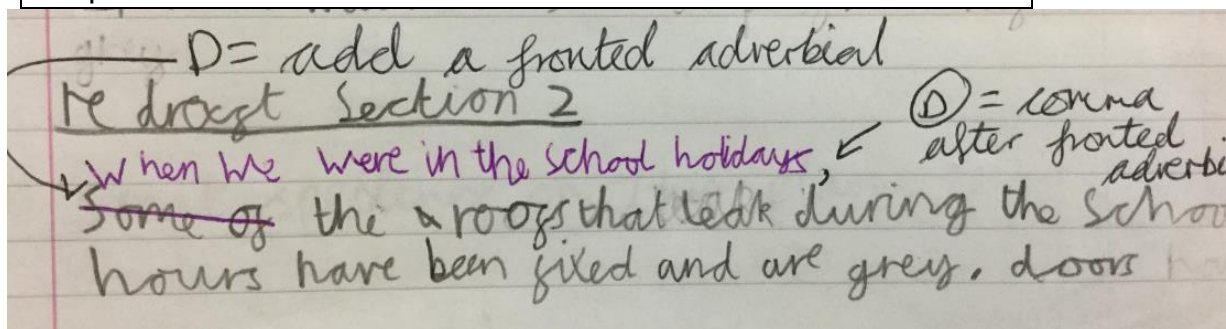 D= add a fronted adverbial
re droxgt Section 2
D = comma
after fronted
adverbi
When we were in the school holidays,
Some of the roogs that leak during the Schoo
hours have been fixed and are grey. doors